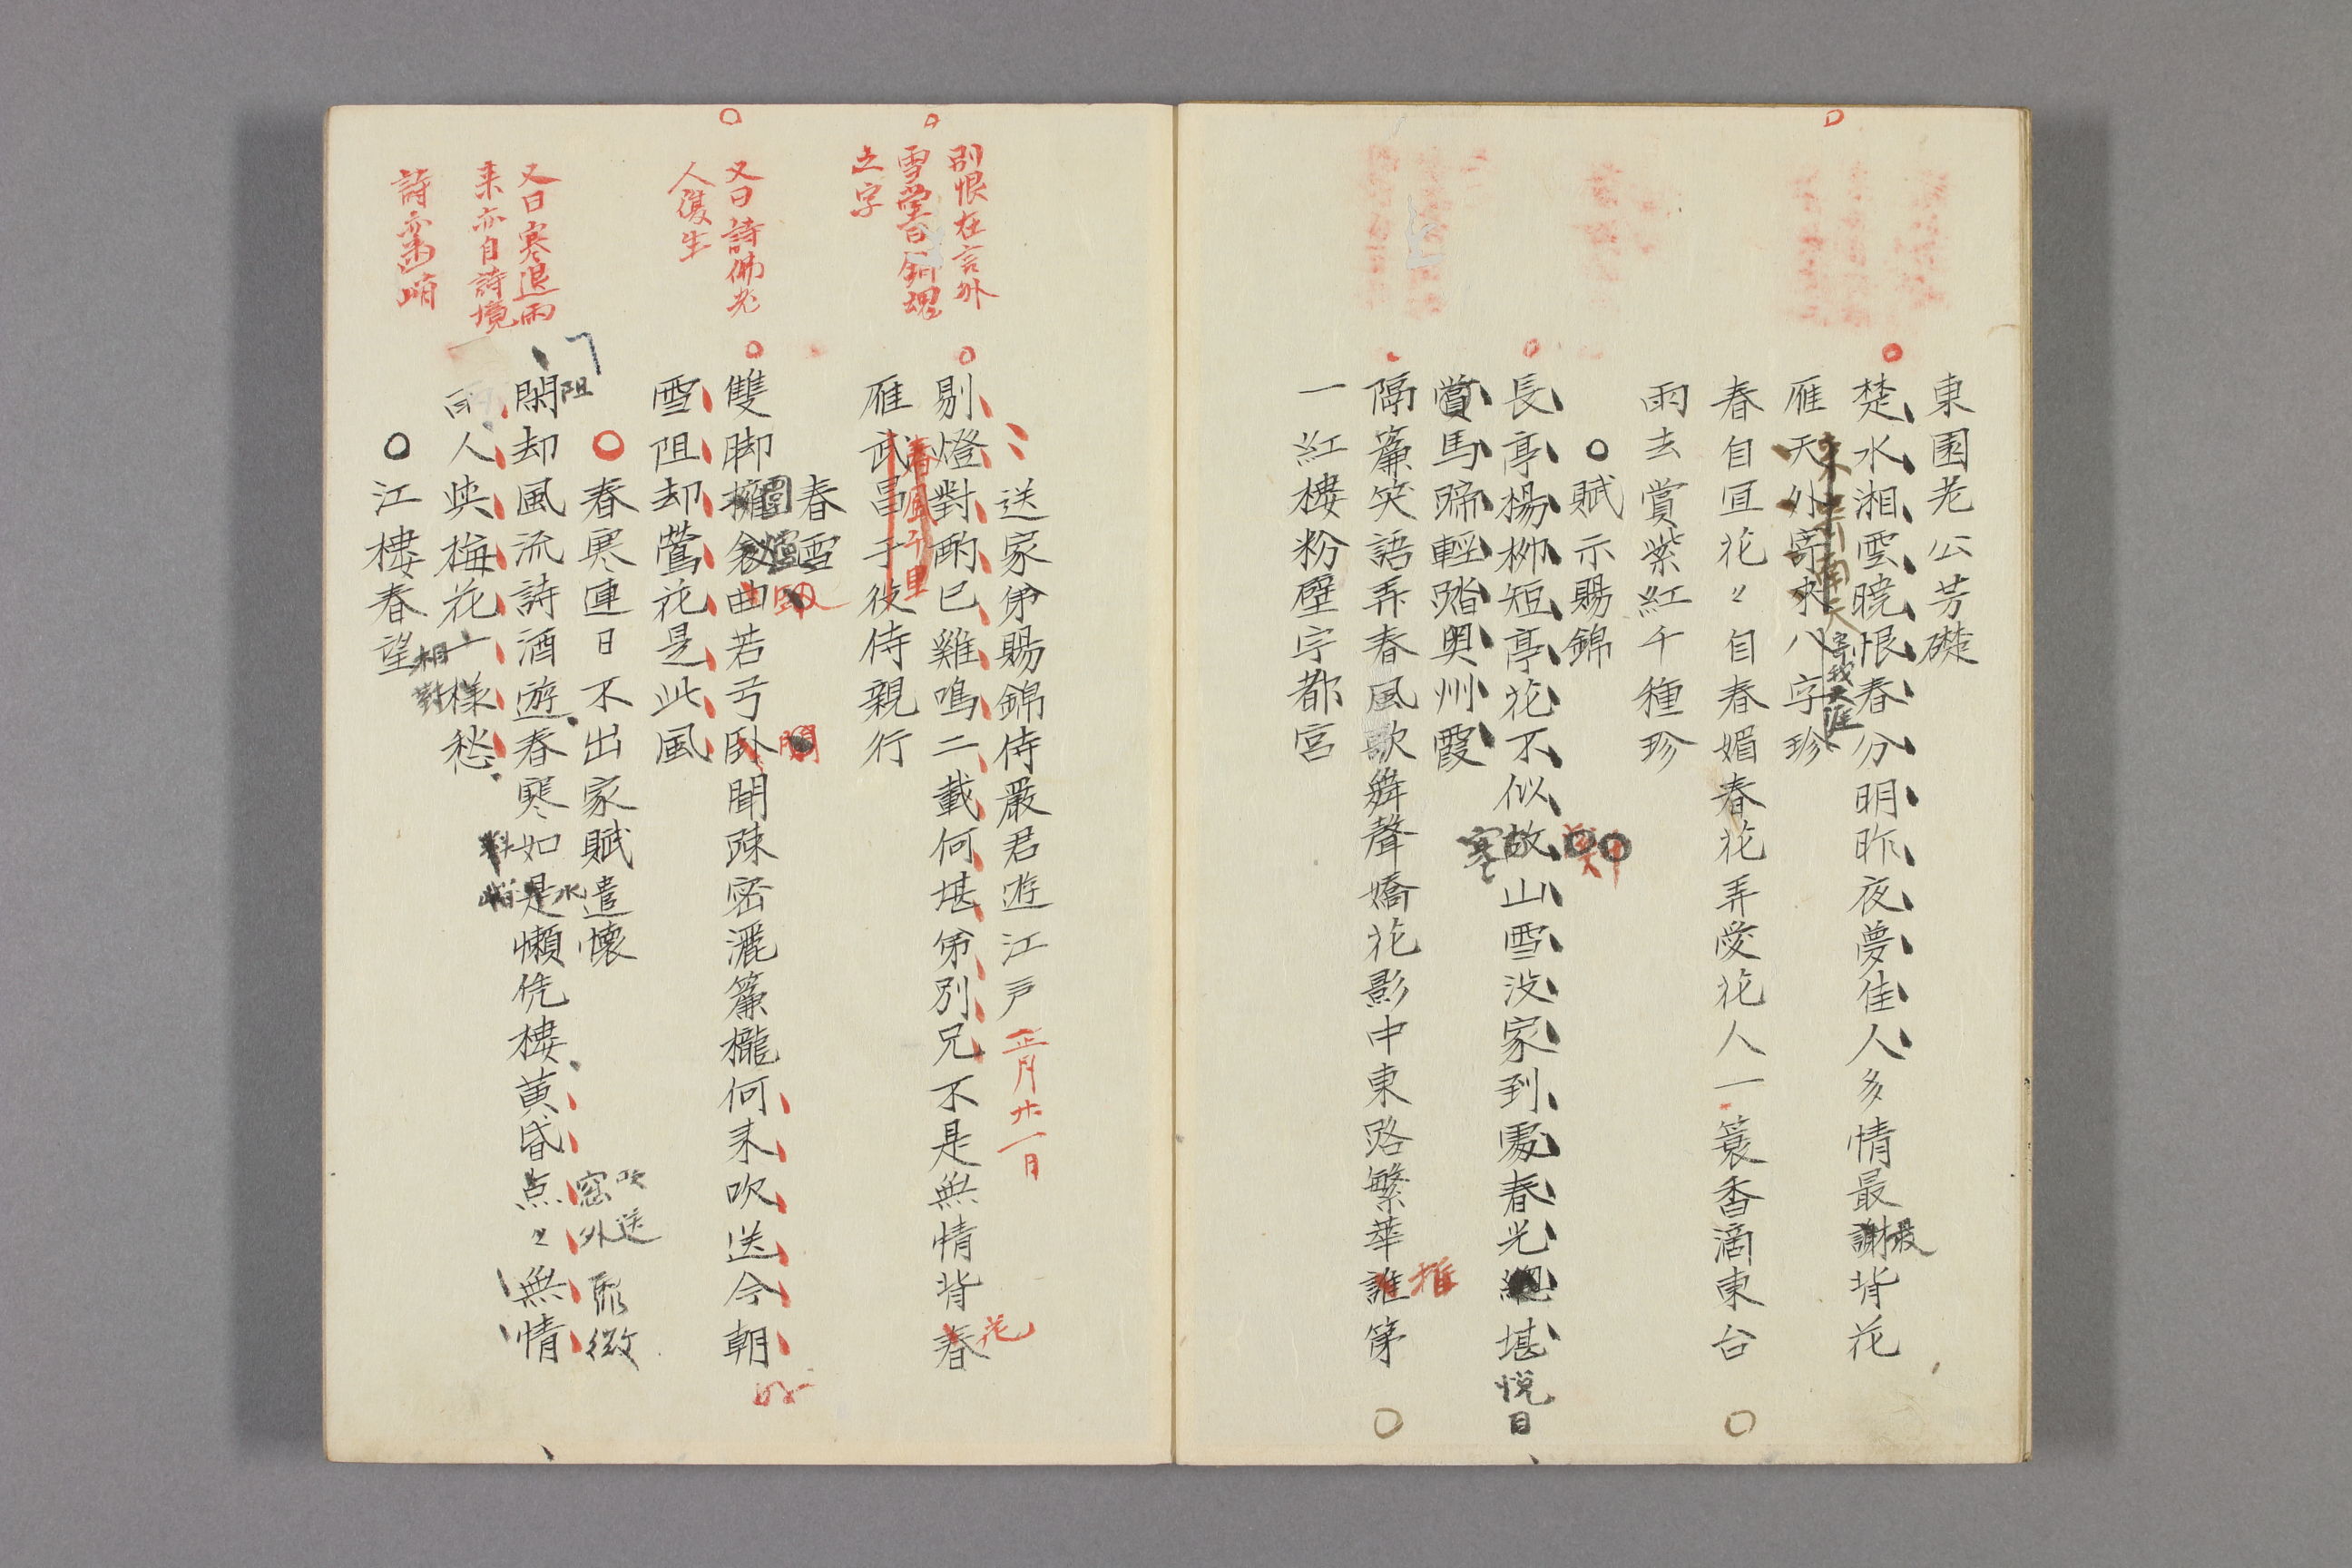 東園老公芳礎
楚水湘雲曉恨春分明昨夜夢佳人多情最謝背花
最
雁天外寄來八字珍
寄我天涯
春自宜花〻自春媚春花弄愛花人一簑香滴東台
雨去賞紫紅千種珍
賦示賜錦
長亭楊柳短亭花不似故山雪没家到處春光總堪悦目
寒
賞馬蹄輕踏奥州霞
隔簾笑語弄春風歌舞聲嬌花影中東路繁華誰第
推
一紅樓粉壁宇都宮
別恨在言外
雪堂曰銷魂
之字
送家弟賜錦侍嚴君遊江戸 正月廿一日
剔燈對酌已雞鳴二載何堪弟別兄不是無情背春
花
雁武昌千里侍親行
春風千里
春雪
又曰詩佛老
人復生
雙脚擁衾曲若弓臥聞疎密灑簾櫳何来吹送今朝
圍爐
雪阻却鶯花是此風
春寒連日不出家賦遣懷
又曰寒退雨
来亦自詩境
閑却風流詩酒遊春寒如是懶凭樓黄昏点〻無情
阻
料峭
水
吹送
窓外
微
雨人與梅花一様愁
相對
詩亦
江樓春望